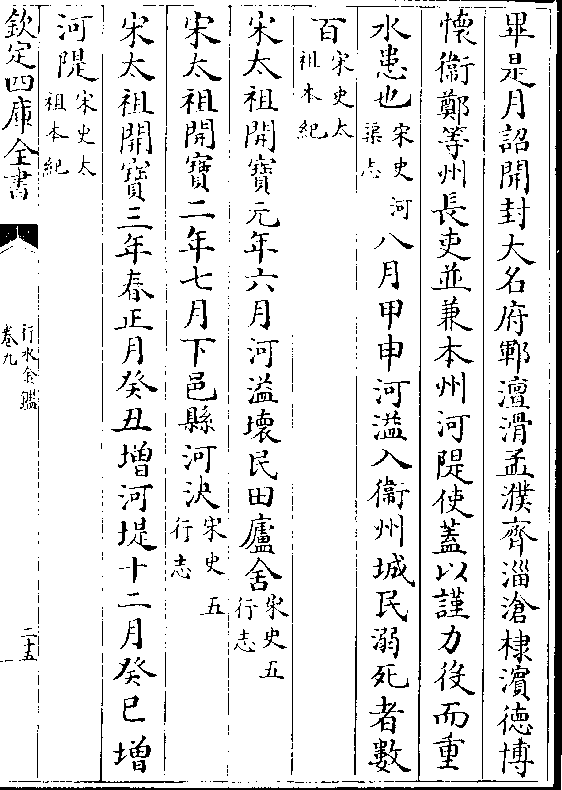 畢是月詔開封大名府鄆澶滑孟濮齊淄滄棣濱徳博
懷衞鄭等州長吏並兼本州河隄使蓋以謹力役而重
水患也宋史河渠志八月甲申河溢入衞州城民溺死者數
百宋史太祖本紀
宋太祖開寳元年六月河溢壞民田廬舍宋史五行志
宋太祖開寳二年七月下邑縣河決宋史五行志
宋太祖開寳三年春正月癸丑增河堤十二月癸巳增
河隄宋史太祖本紀
欽定四庫全書
行水金鑑
卷九
二十五